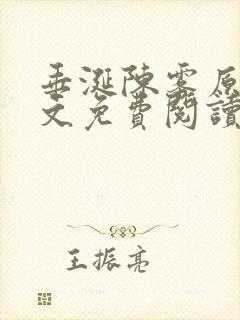 垂涎陳霧原
文免費閱讀
王振亮